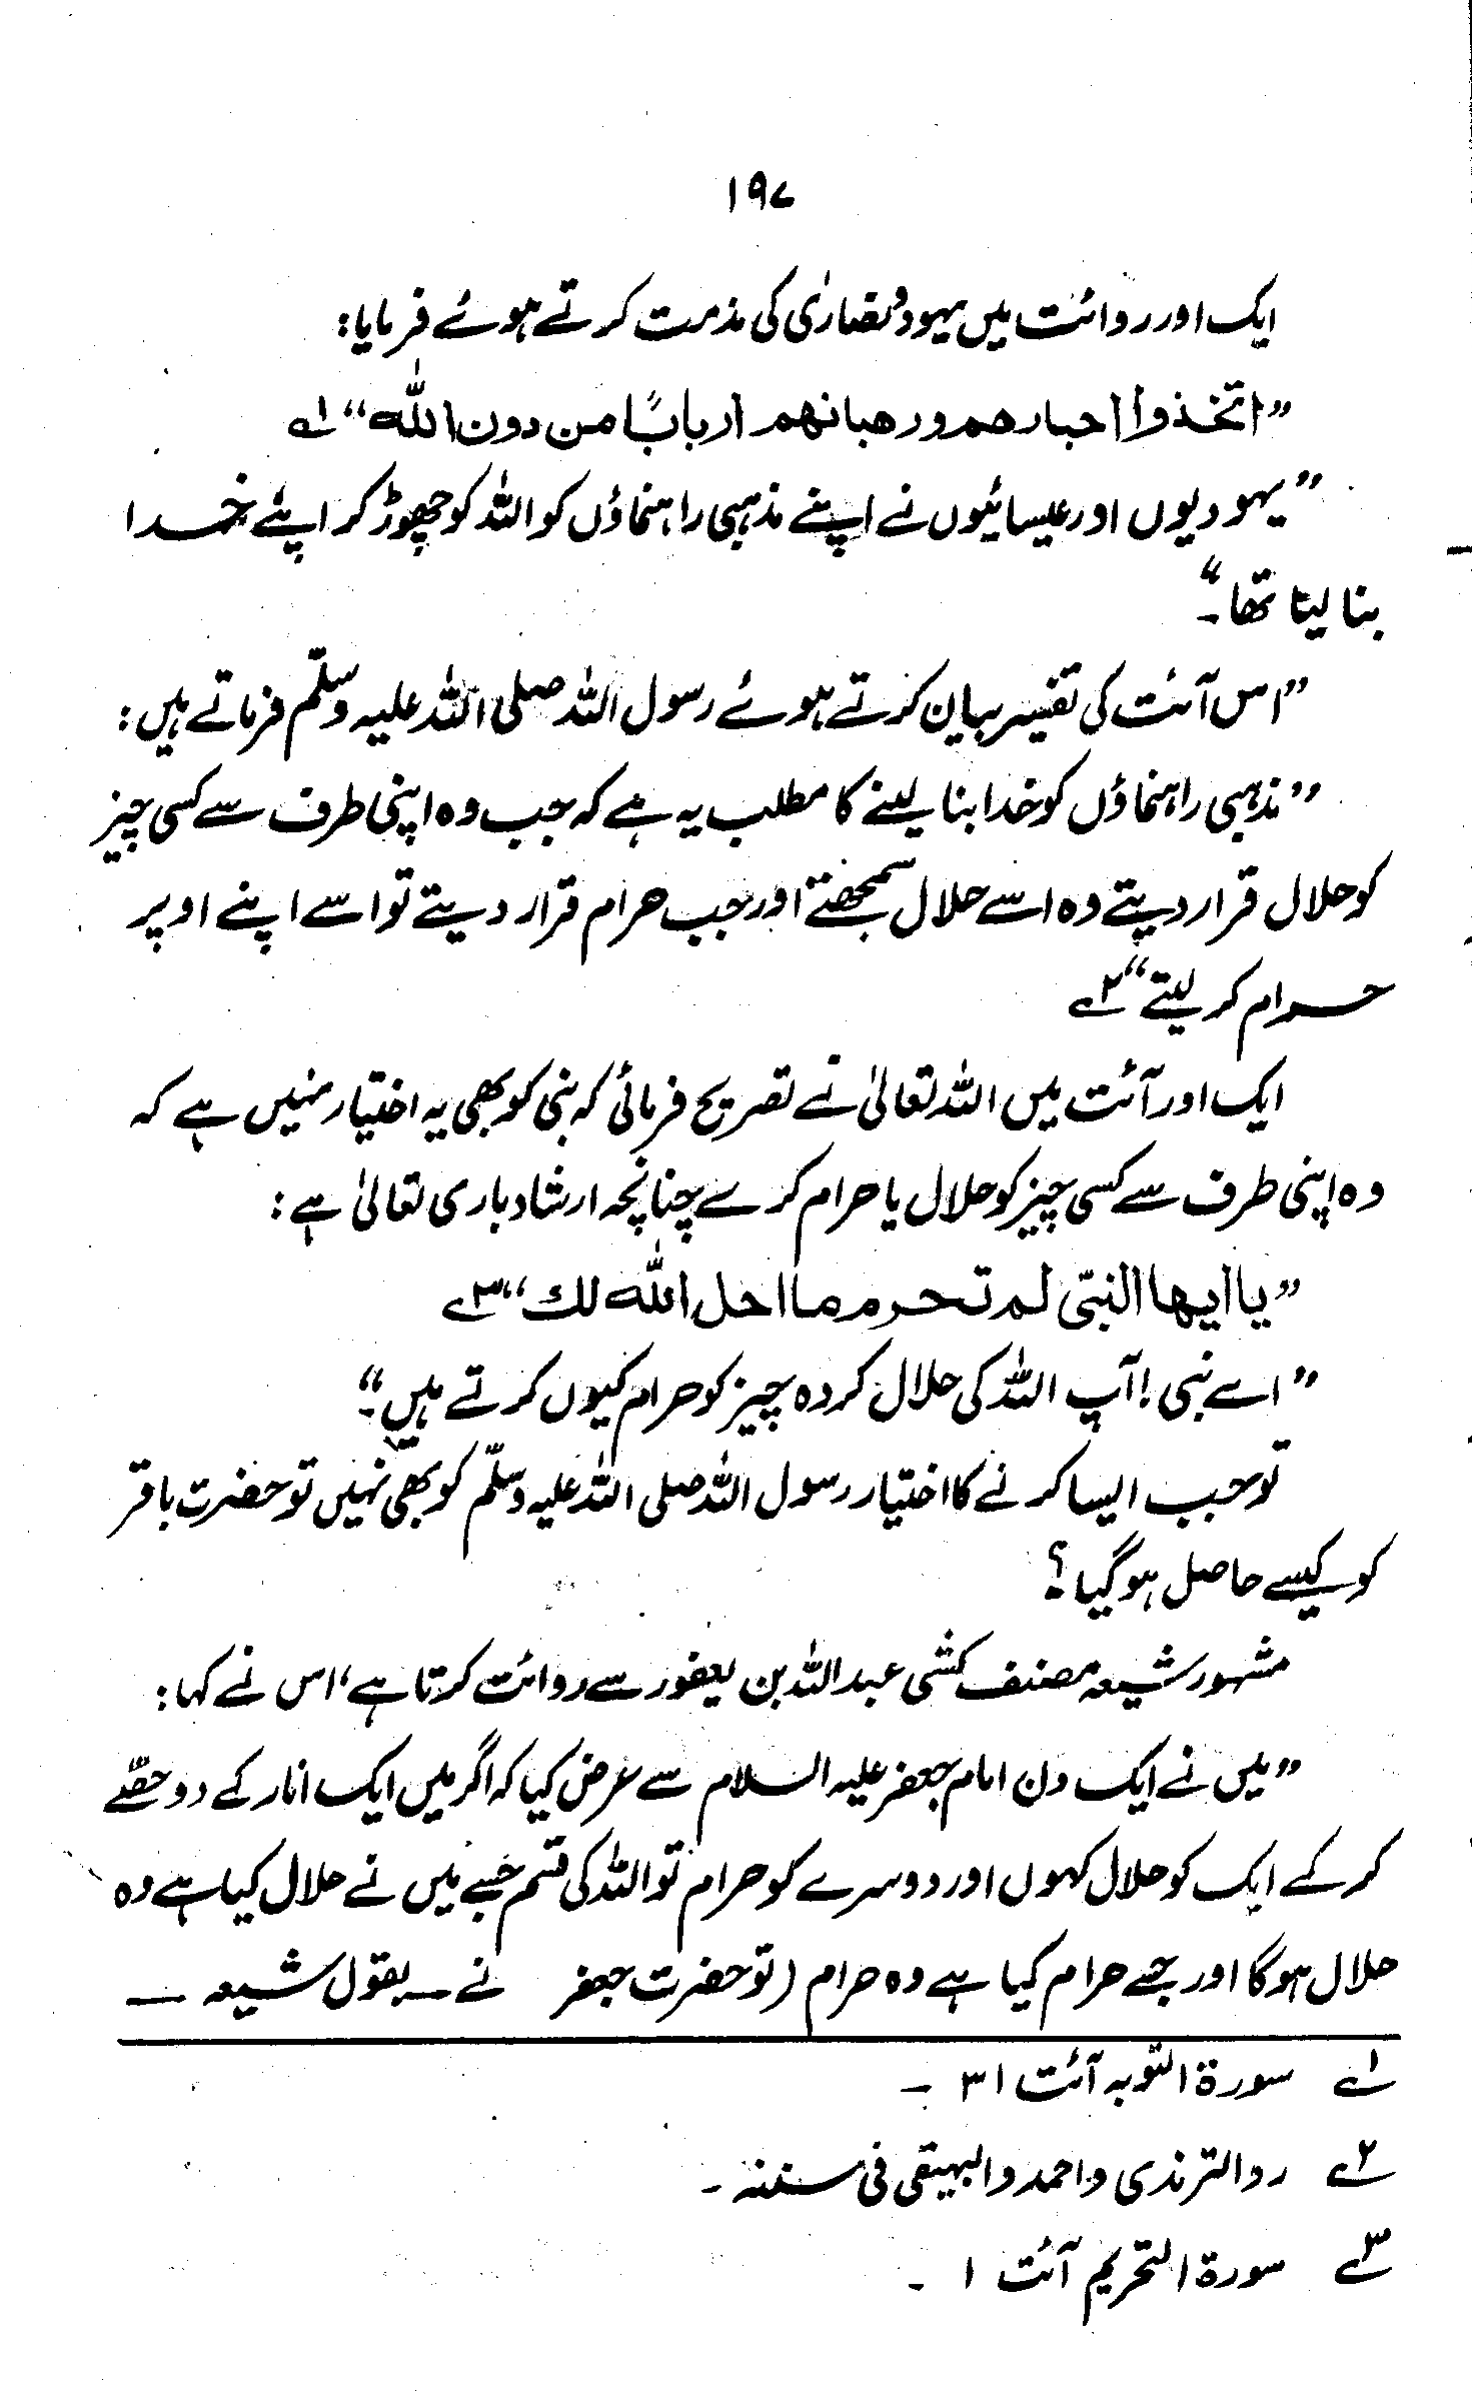 ۱۹۷
ایک اور روائت میں یہود و نصارٰی کی مذمت کرتے ہوئے فرمایا:
”اتخذوا احبارھم ورھبانھم اربابًا من دون اللہ“ ۱؎
”یہودیوں اور عیسائیوں نے اپنے مذہبی راہنماؤں کو اللہ کو چھوڑ کر اپنے خدا
بنا لیا تھا۔“
”اس آئت کی تفسیر بیان کرتے ہوئے رسول اللہ صلی اللہ علیہ وسلّم فرماتے ہیں:
”مذہبی راہنماؤں کو خدا بنا لینے کا مطلب یہ ہے کہ جب وہ اپنی طرف سے کسی چیز
کو حلال قرار دیتے وہ اسے حلال سمجھتے اور جب حرام قرار دیتے تو اسے اپنے اوپر
حرام کر لیتے“ ۲؎
ایک اور آئت میں اللہ تعالیٰ نے تصریح فرمائی کہ نبی کو بھی یہ اختیار نہیں ہے کہ
وہ اپنی طرف سے کسی چیز کو حلال یا حرام کرے چنانچہ ارشاد باری تعالیٰ ہے:
”یا ایھا النبیّ لم تحرم ما احل اللہ لك“ ۳؎
”اے نبی! آپ اللہ کی حلال کردہ چیز کو حرام کیوں کرتے ہیں۔“
تو جب ایسا کرنے کا اختیار رسول اللہ صلی اللہ علیہ وسلّم کو بھی نہیں تو حضرت باقر
کو کیسے حاصل ہو گیا؟
مشہور شیعہ مصنف کشی عبداللہ بن یعفور سے روائت کرتا ہے، اس نے کہا:
”میں نے ایک دن امام جعفر علیہ السلام سے عرض کیا کہ اگر میں ایک انار کے دو حصّے
کر کے ایک کو حلال کہوں اور دوسرے کو حرام تو اللہ کی قسم جسے میں نے حلال کیا ہے وہ
حلال ہو گا اور جسے حرام کیا ہے وہ حرام (تو حضرت جعفر نے — بقول شیعہ —
۱؎ سورۃ التوبہ آئت ۳۱ ۔
۲؎ رو الترمذی و احمد و البہیقی فی سننہ ۔
۳؎ سورۃ التحریم آئت ۱ ۔